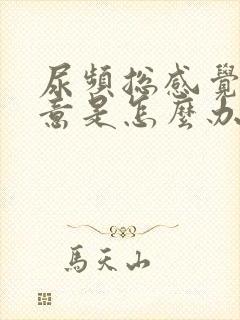 尿頻總感覺
意是怎麼办
馬天山